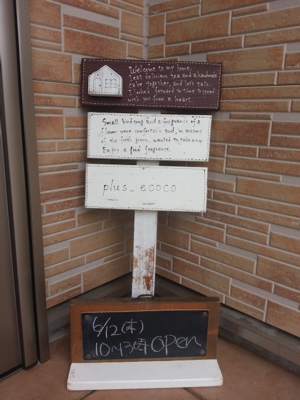 Welcome to my home.
Let delicious tea and a handmade
cake together, and lets talk.
I looked forward to time to spend
with you from a heart.
Small birdsong and a fragrance of a
flower were comfortable and, in
of the fields green, wanted to take away
Enjoy a good fragrance.
plus_ecoco
6/12(木)
10~13時 OPEN